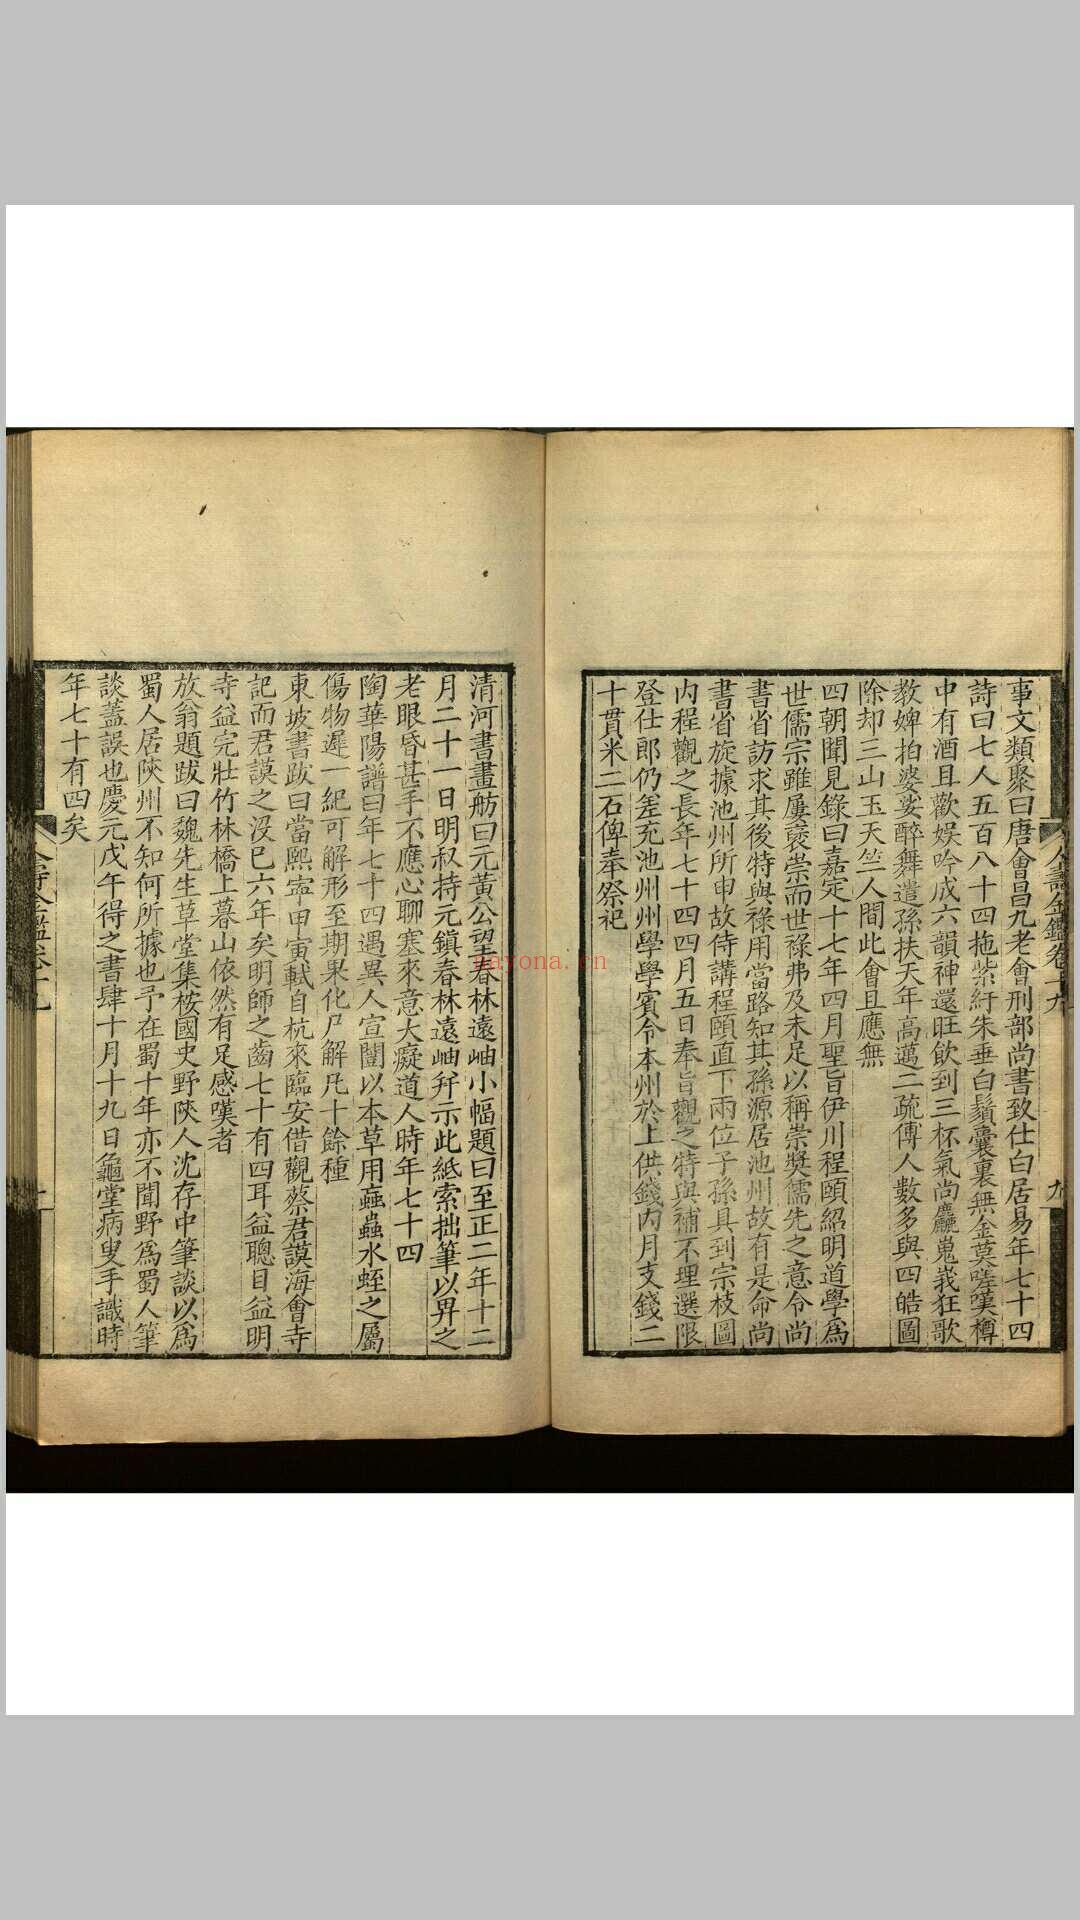 人壽金鑑卷十九
九
事文類聚曰唐會昌九老會刑部尚書致仕白居易年七十四
詩曰七人五百八十四拖紫紆朱垂白鬚囊裏無金莫嗟嘆樽
中有酒且歡娛吟成六韻神還旺飲到三杯氣尚麤嵬峩狂歌
教婢拍婆娑醉舞遣孫扶天年高邁二疏傅人數多與四皓圖
除却三山玉天竺人間此會且應無
四朝聞見錄曰嘉定十七年四月聖旨伊川程頤紹明道學爲
世儒宗雖屢褒崇而世祿弗及未足以稱崇獎儒先之意令尚
書省訪求其後特與祿用當路知其孫源居池州故有是命尚
書省旋據池州所申故侍講程頤直下兩位子孫具到宗枝圖
內程觀之長年七十四四月五日奉旨觀之特與補不理選限
登仕郎仍差充池州州學學賓令本州於上供錢內月支錢二
十貫米二石俾奉祭祀
清河書畫舫曰元黃公望春林遠岫小幅題曰至正二年十二
月二十一日明叔持元鎮春林遠岫幷示此紙索拙筆以畀之
老眼昏甚手不應心聊塞來意大癡道人時年七十四
陶華陽譜曰年七十四遇異人宣闓以本草用䗈蟲水蛭之屬
傷物遲一紀可解形至期果化尸解凡十餘種
東坡書跋曰當熙寧甲寅軾自杭來臨安借觀蔡君謨海會寺
記而君謨之沒巳六年矣明師之齒七十有四耳益聰目益明
寺益完壯竹林橋上暮山依然有足感嘆者
放翁題跋曰魏先生草堂集桉國史野陝人沈存中筆談以爲
蜀人居陝州不知何所據也予在蜀十年亦不聞野爲蜀人筆
談蓋誤也慶元戊午得之書肆十月十九日龜堂病叟手識時
年七十有四矣
nayona.cn